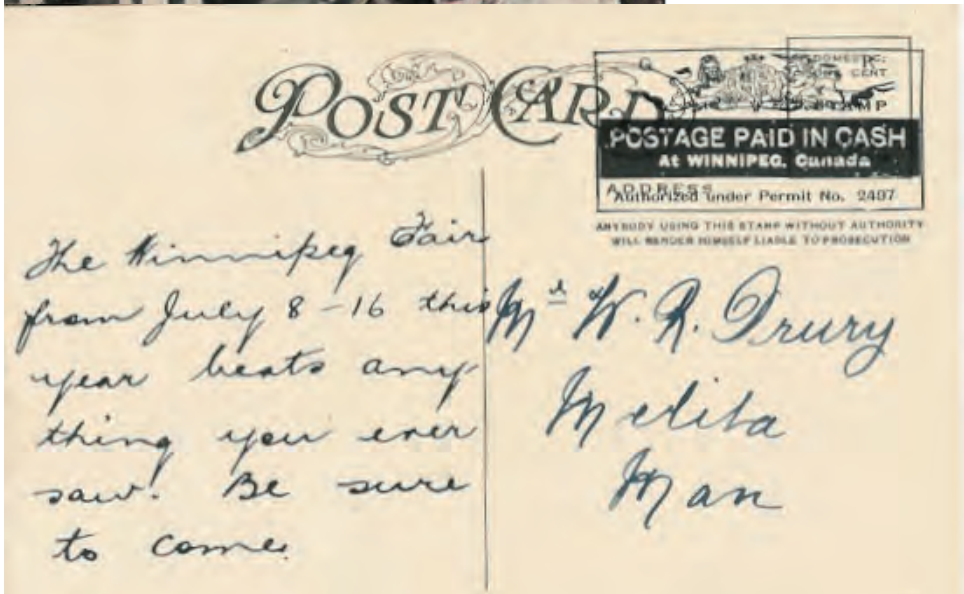 POST CARD
G R
DOMESTIC:
CENT
STAMP
POSTAGE PAID IN CASH
At WINNIPEG, Canada
ADDRESS
Authorized under Permit No. 2497
ANYBODY USING THIS STAMP WITHOUT AUTHORITY
WILL RENDER HIMSELF LIABLE TO PROSECUTION
The Winnipeg Fair
from July 8-16 this
year beats any
thing you ever
saw. Be sure
to come.
Mr W. R. Drury
Melita
Man